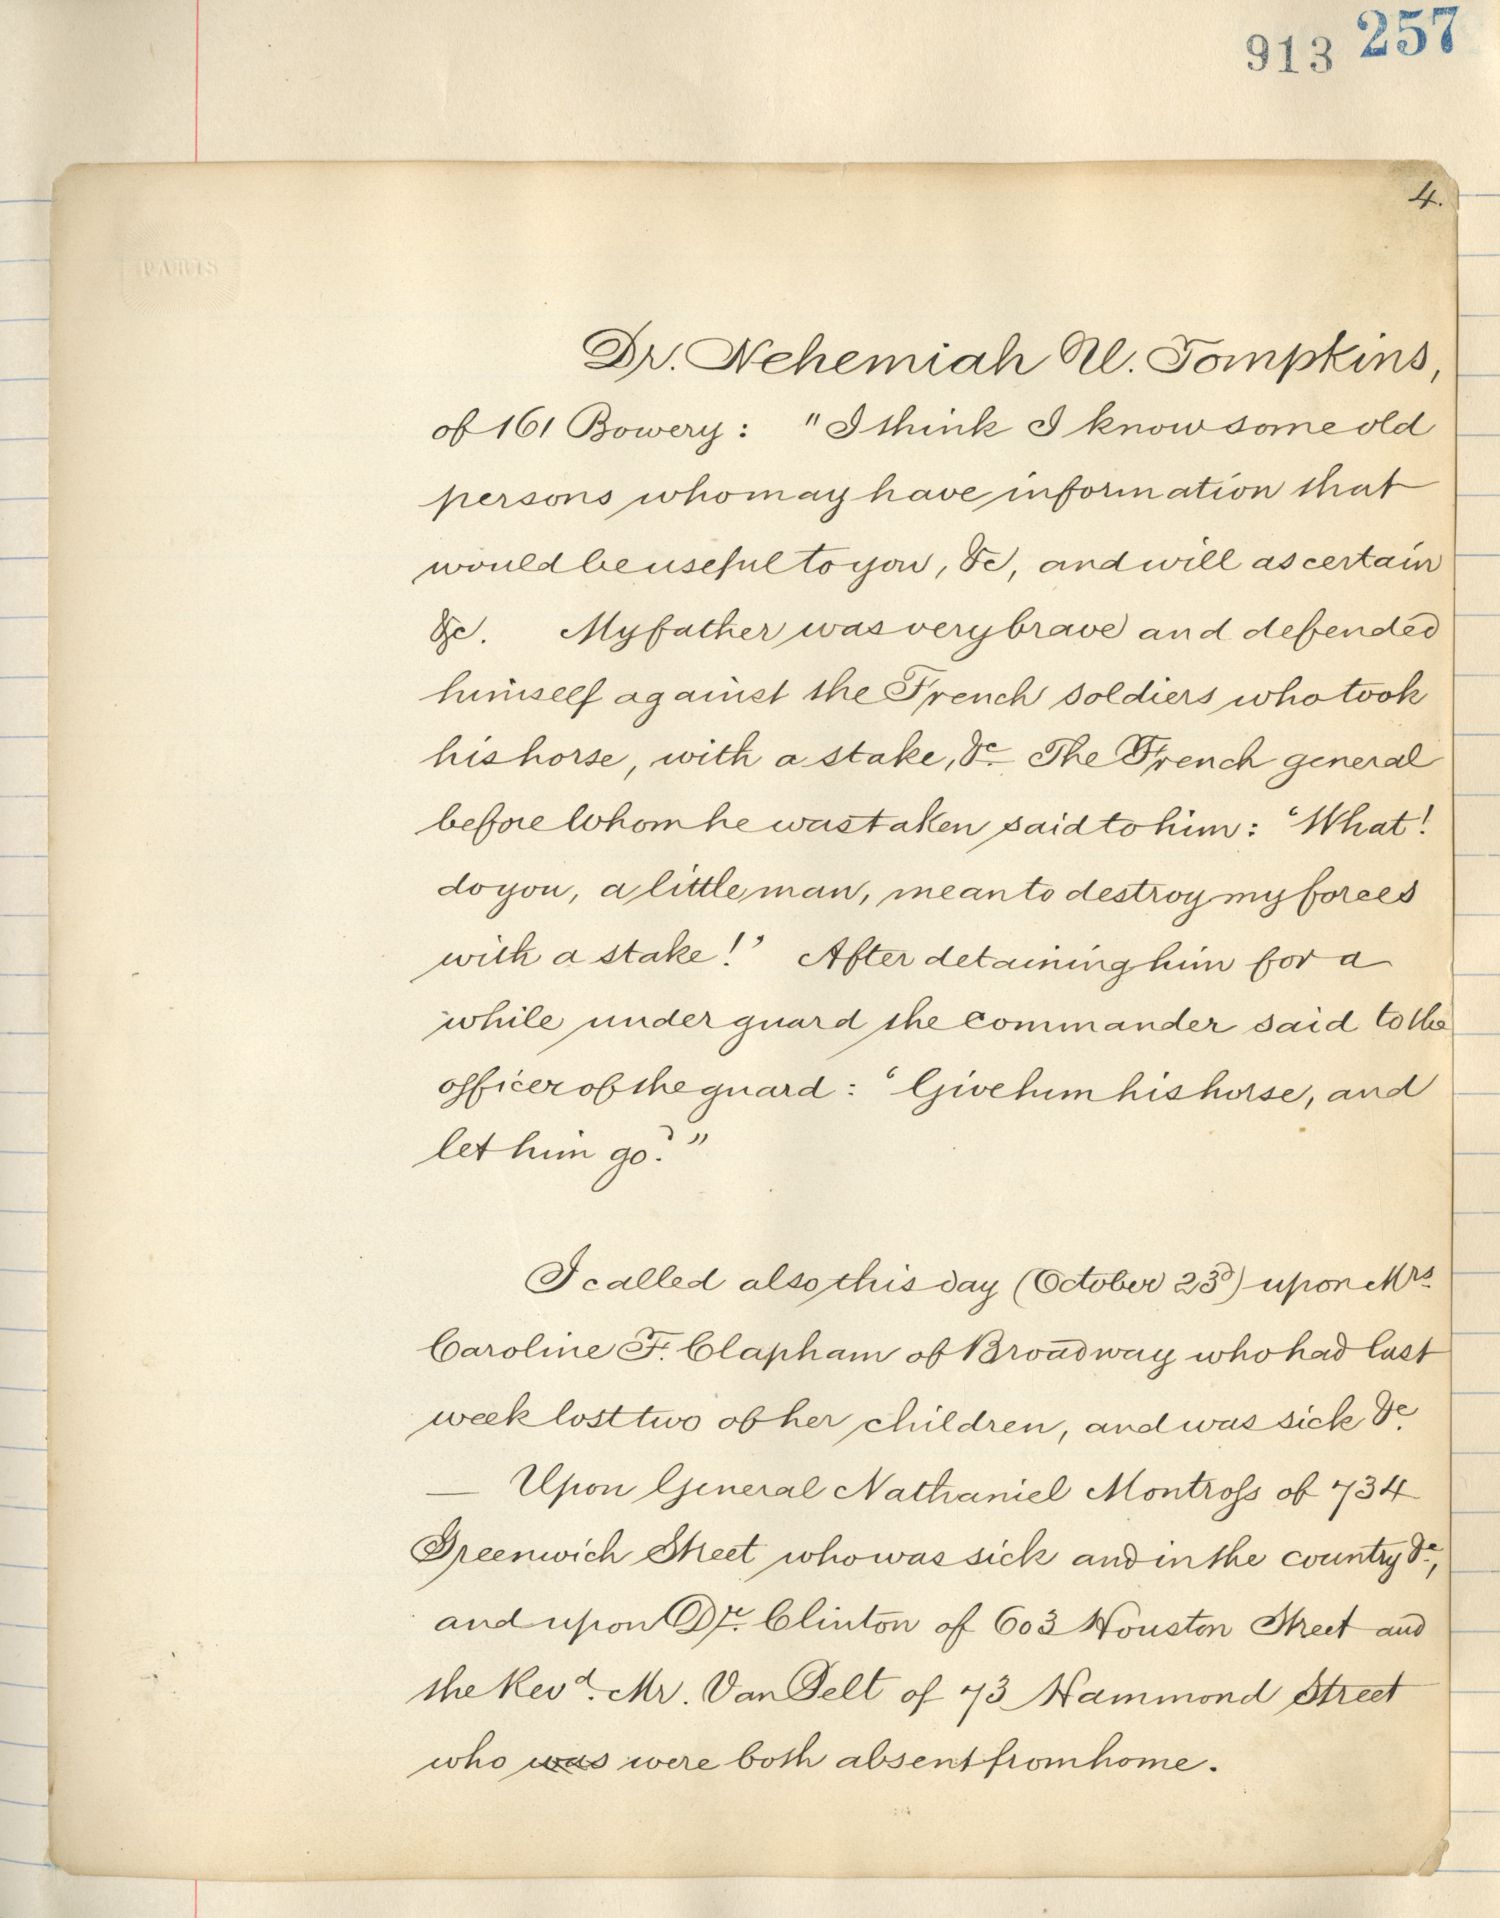 913 257
4.
PARIS
Dr. Nehemiah U. Tompkins,
of 161 Bowery: "I think I know some old
persons who may have information that
would be useful to you, &c, and will ascertain
&c. My father was very brave and defended
himself against the French soldiers who took
his horse, with a stake, &c. The French general
before whom he was taken said to him: 'What!
do you, a little man, mean to destroy my forces
with a stake!' After detaining him for a
while under guard the commander said to the
officer of the guard: 'Give him his horse, and
let him go.'"
I called also this day (October 23d) upon Mrs.
Caroline F. Clapham of Broadway who had last
week lost two of her children, and was sick &c.
— Upon General Nathaniel Montross of 734
Greenwich Street who was sick and in the country &c.,
and upon Dr. Clinton of 603 Houston Street and
the Revd. Mr. Van Pelt of 73 Hammond Street
who was were both absent from home.